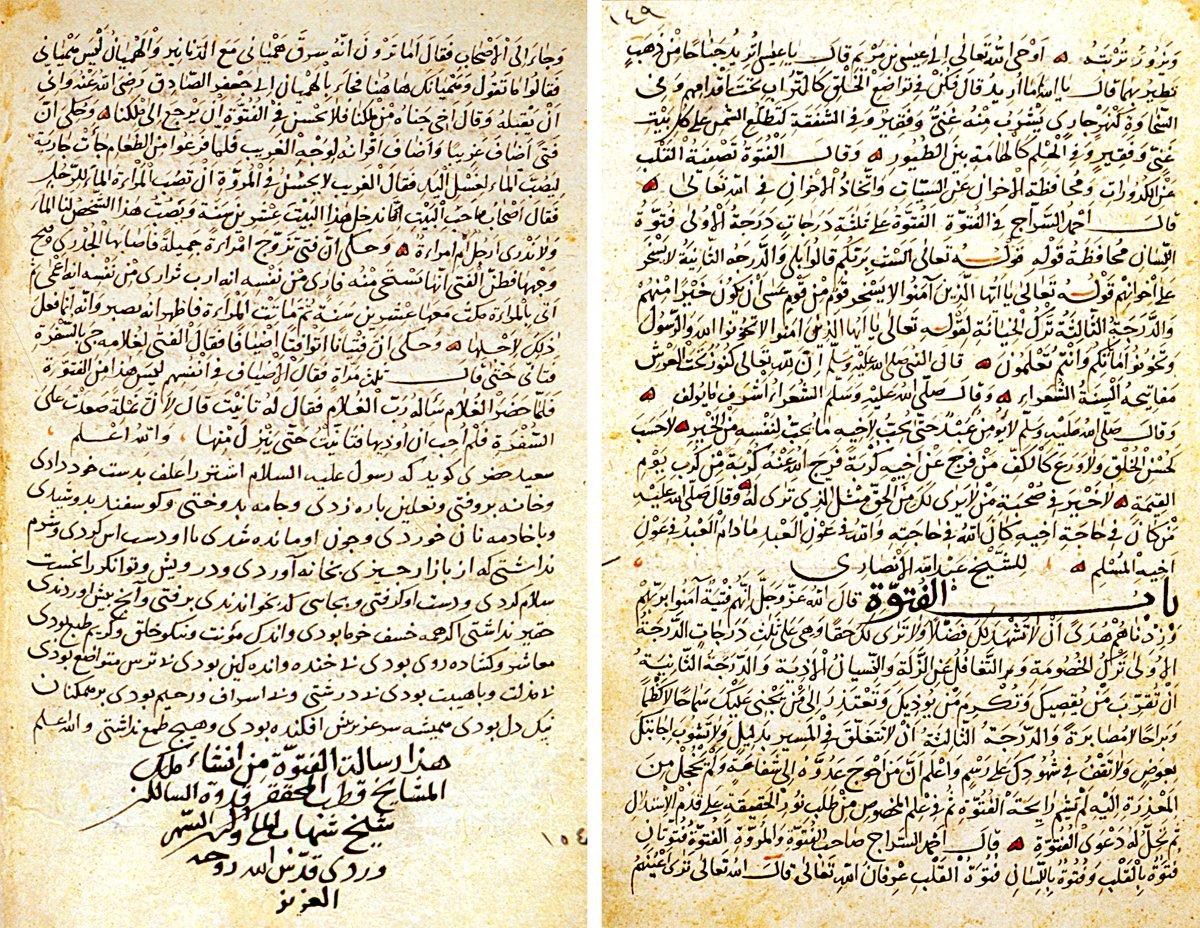 ١٤٩
ونزور تربته اوحى الله تعالى الى عيسى بن مريم قال يا عيسى اتريد جناحا من ذهب
تطير بهما قال يا الله اما اريد قال فكن في تواضع الخلق كالتراب تحت اقدامهم وفي
السخاوة كنهر جاري يشرب منه غني وفقير وفي الشفقة كتطلع الشمس على كل بيت
غني وفقير وفي الحلم كالهامة بين الطيور وقال الفتوة تصفية القلب
عن الكدورات ومحافظة الاخوان عن السيئات واتخاذ الاخوان في الله تعالى
قال احمد السراج في الفتوة الفتوة على ثلثة درجات درجة الاولى فتوة
اللسان محافظة قوله قوله تعالى الست بربكم قالوا بلى والدرجة الثانية لا يسخر
على اخوانهم قوله تعالى يا ايها الذين آمنوا لا يسخر قوم من قوم عسى ان يكون خيرا منهم
والدرجة الثالثة ترك الخيانة لقوله تعالى يا ايها الذين امنوا لا تخونوا الله والرسول
وتخونوا اماناتكم وانتم تعلمون قال النبي صلى الله عليه وسلم ان لله تعالى كنوز تحت العرش
مفاتيحه السنة الشعراء وقال صلى الله عليه وسلم الشعراء اشرف
وقال صلى الله عليه وسلم لا يؤمن عبد حتى يحب لاخيه ما يحب لنفسه من الخير لا حسب
كحسن الخلق ولا ورع كالكف من فرج عن اخيه كربة فرج الله عنه كربة من كرب يوم
القيمة لا خير في صحبة من لا يرى لك من الحق مثل الذي ترى له وقال صلى الله عليه
من كان في حاجة اخيه كان الله في حاجته والله في عون العبد ما دام العبد في عون
اخيه المسلم للشيخ عبد الله الانصاري
باب الفتوة قال الله عز وجل انهم فتية آمنوا بربهم
وزدناهم هدى ان لا تشهد لك فضلا ولا ترى لك حقا وهي على ثلث درجات الدرجة
الاولى ترك الخصومة والتغافل عن الزلة والنسيان الاذية والدرجة الثانية
ان تقرب من يقصيك وتكريم من يوذيك وتعتذر الى من يجني عليك سماحا لا كظما
وبراحا لا مصابرة والدرجة الثالثة ان لا تتعلق في المسير بدليل ولا تشوب اجابتك
بعوض ولا تقف في شهودك على رسم واعلم ان من احوج عدوه الى شفاعة ولم يخجل من
المعذرة اليه لم يشم رايحة الفتوة ثم في علم الخصوص من طلب نور الحقيقة على قدم الاستدلال
لم يحل له دعوى الفتوة قال احمد السراج صاحب الفتوة والمروة الفتوة فتوتان
فتوة بالقلب وفتوة باللسان فتوة القلب عرفان الله تعالى قال الله تعالى ترى اعينهم
وجاء الى الاصحاب فقال اما ترون انه سرق همياني مع الدنانير والهميان ليس همياني
فقالوا ما تقول وهميانك هاهنا فجاء بالهميان الى جعفر الصادق رضى الله عنه وابى
ان يقبله وقال اخرجناه من ملكنا فلا يحسن في الفتوة ان يرجع الى ملكنا وحكى ان
فتى اضاف غريبا واضاف اقرانه لوجه الغريب فلما فرغوا من الطعام جأت جارية
ليصب الماء لغسل اليد فقال الغريب لا يحسن في المروة ان تصب المراءة الماء للرجل
فقال اصحاب صاحب البيت انا ندخل هذا البيت عشرين سنة ويصب هذا الشخص لنا الماء
ولا ندرى ارجل ام امراءة وحكى ان فتى تزوج امراءة جميلة فاصابها الجدرى وقبح
وجهها فظن الفتى انها تستحى منه فارى من نفسه انه ارب ثم ارى من نفسه انه اعمى ثم
اتى بالمراءة مكث معها عشرين سنة ثم ماتت المراءة فاظهر انه بصير وانه انما فعل
ذلك لاجلها وحكى ان فتيانا اتوا فتا اضيافا فقال الفتى لغلامه جئ بالسفرة
فتأنى حتى قال ثلث مراة فقال الاضياف في انفسهم ليس هذا من الفتوة
فلما حضر الغلام ساله رب الغلام فقال له تانيت قال لان نملة صعدت على
السفرة فلم احب ان اوذيها فتانيت حتى ينزل منها والله اعلم
سعيد خدرى كويد كه رسول عليه السلام اشتر را علف بدست خود دادى
وخانه بروفتى ونعلين پاره زدى وجامه بدوختى وكوسفند بدوشيدى
وبا خادمه نان خوردى وچون او مانده شدى با او دست اس كردى وشرم
نداشتى كه از بازار چيزى بخانه آوردى ودرويش وتوانكر را نخست
سلام كردى ودست او كرفتى وبجايى كه بخواندندى برفتى وآنچ پيش اوردندى
حقير نداشتى اكرچه خسف خرما بودى واندك مؤنت ونيكو خلق وكريم طبع بودى
معاشر وكشاده روى بودى نه خنده واندهكين بودى نه ترس متواضع بودى
نه مذلت وباهيبت بودى نه درشتى ونه اسراف ورحيم بودى بر همكنان
تنك دل بودى هميشه سر عزيزش افكنده بودى وهيچ طمع نداشتى والله علم
هذا رسالة الفتوة من انشاء ملك
المشايخ قطب المحققين قدوة السالكين
شيخ شهاب الملة والدين السهر
وردى قدس الله روحه
العزيز